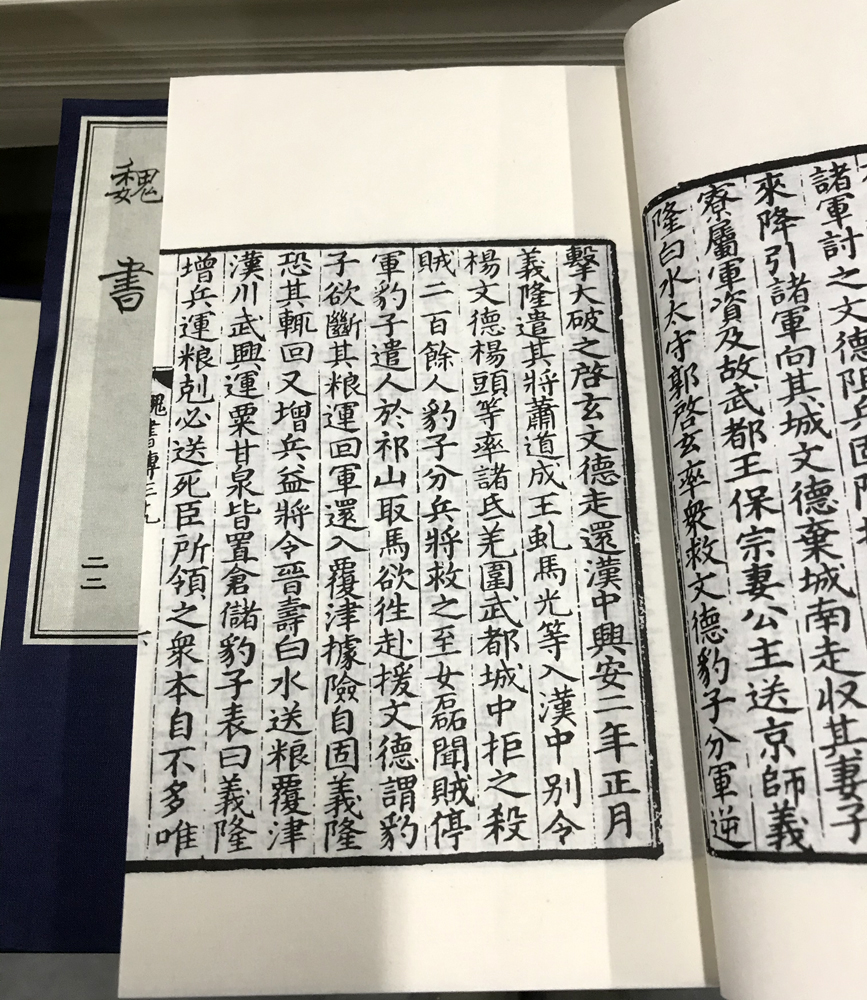 諸軍討之文德阻兵固險
來降引諸軍向其城文德棄城南走收其妻子
寮屬軍資及故武都王保宗妻公主送京師義
隆白水太守郭啓玄率衆救文德豹子分軍逆
擊大破之啓玄文德走還漢中興安二年正月
義隆遣其將蕭道成王虬馬光等入漢中別令
楊文德楊頭等率諸氐羌圍武都城中拒之殺
賊二百餘人豹子分兵將救之至女磊聞賊停
軍豹子遣人於祁山取馬欲往赴援文德謂豹
子欲斷其粮運回軍還入覆津據險自固義隆
恐其輒回又增兵益將令晉壽白水送粮覆津
漢川武興運粟甘泉皆置倉儲豹子表曰義隆
增兵運粮剋必送死臣所領之衆本自不多唯
魏書傳三九
六
魏書
二二